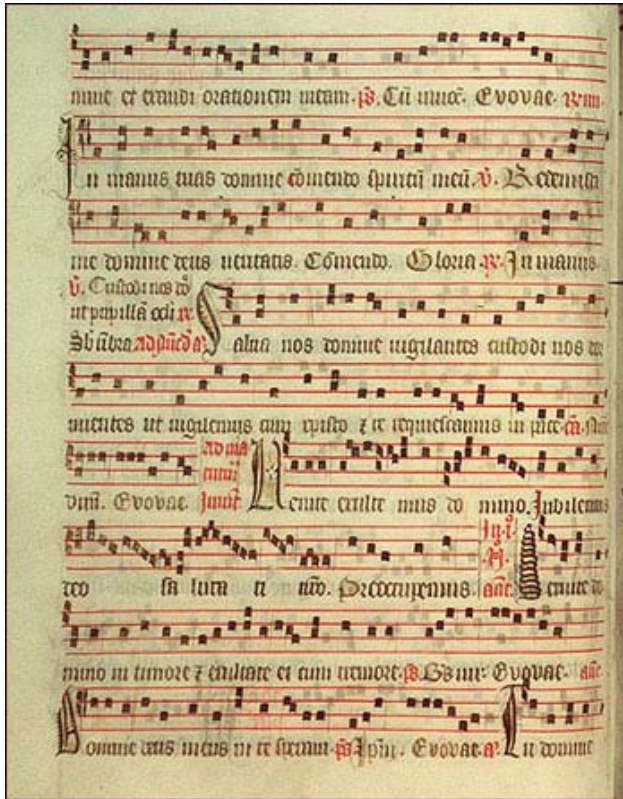 mine et exaudi orationem meam. ps. Cū inuoc. Evovae.
In manus tuas domine cōmendo spiritū meū. v. Redemisti
me domine deus ueritatis. Cōmendo. Gloria. In manus.
v. Custodi nos dō
ut pupillā oculi
Sb ūbra. Salua nos domine uigilantes custodi nos dor
mientes ut uigilemus cum xpisto ⁊ re requiescamus in pace.
Evovae. Venite exulte mus do mino. Jubilemus
deo sa luta ri nro. Preoccupemus. Venite do
mino in timore ⁊ exultate ei cum tremore. ps. Evovae. añe
Domine deus meus in te speraui. ps. Evovae. a. In domino